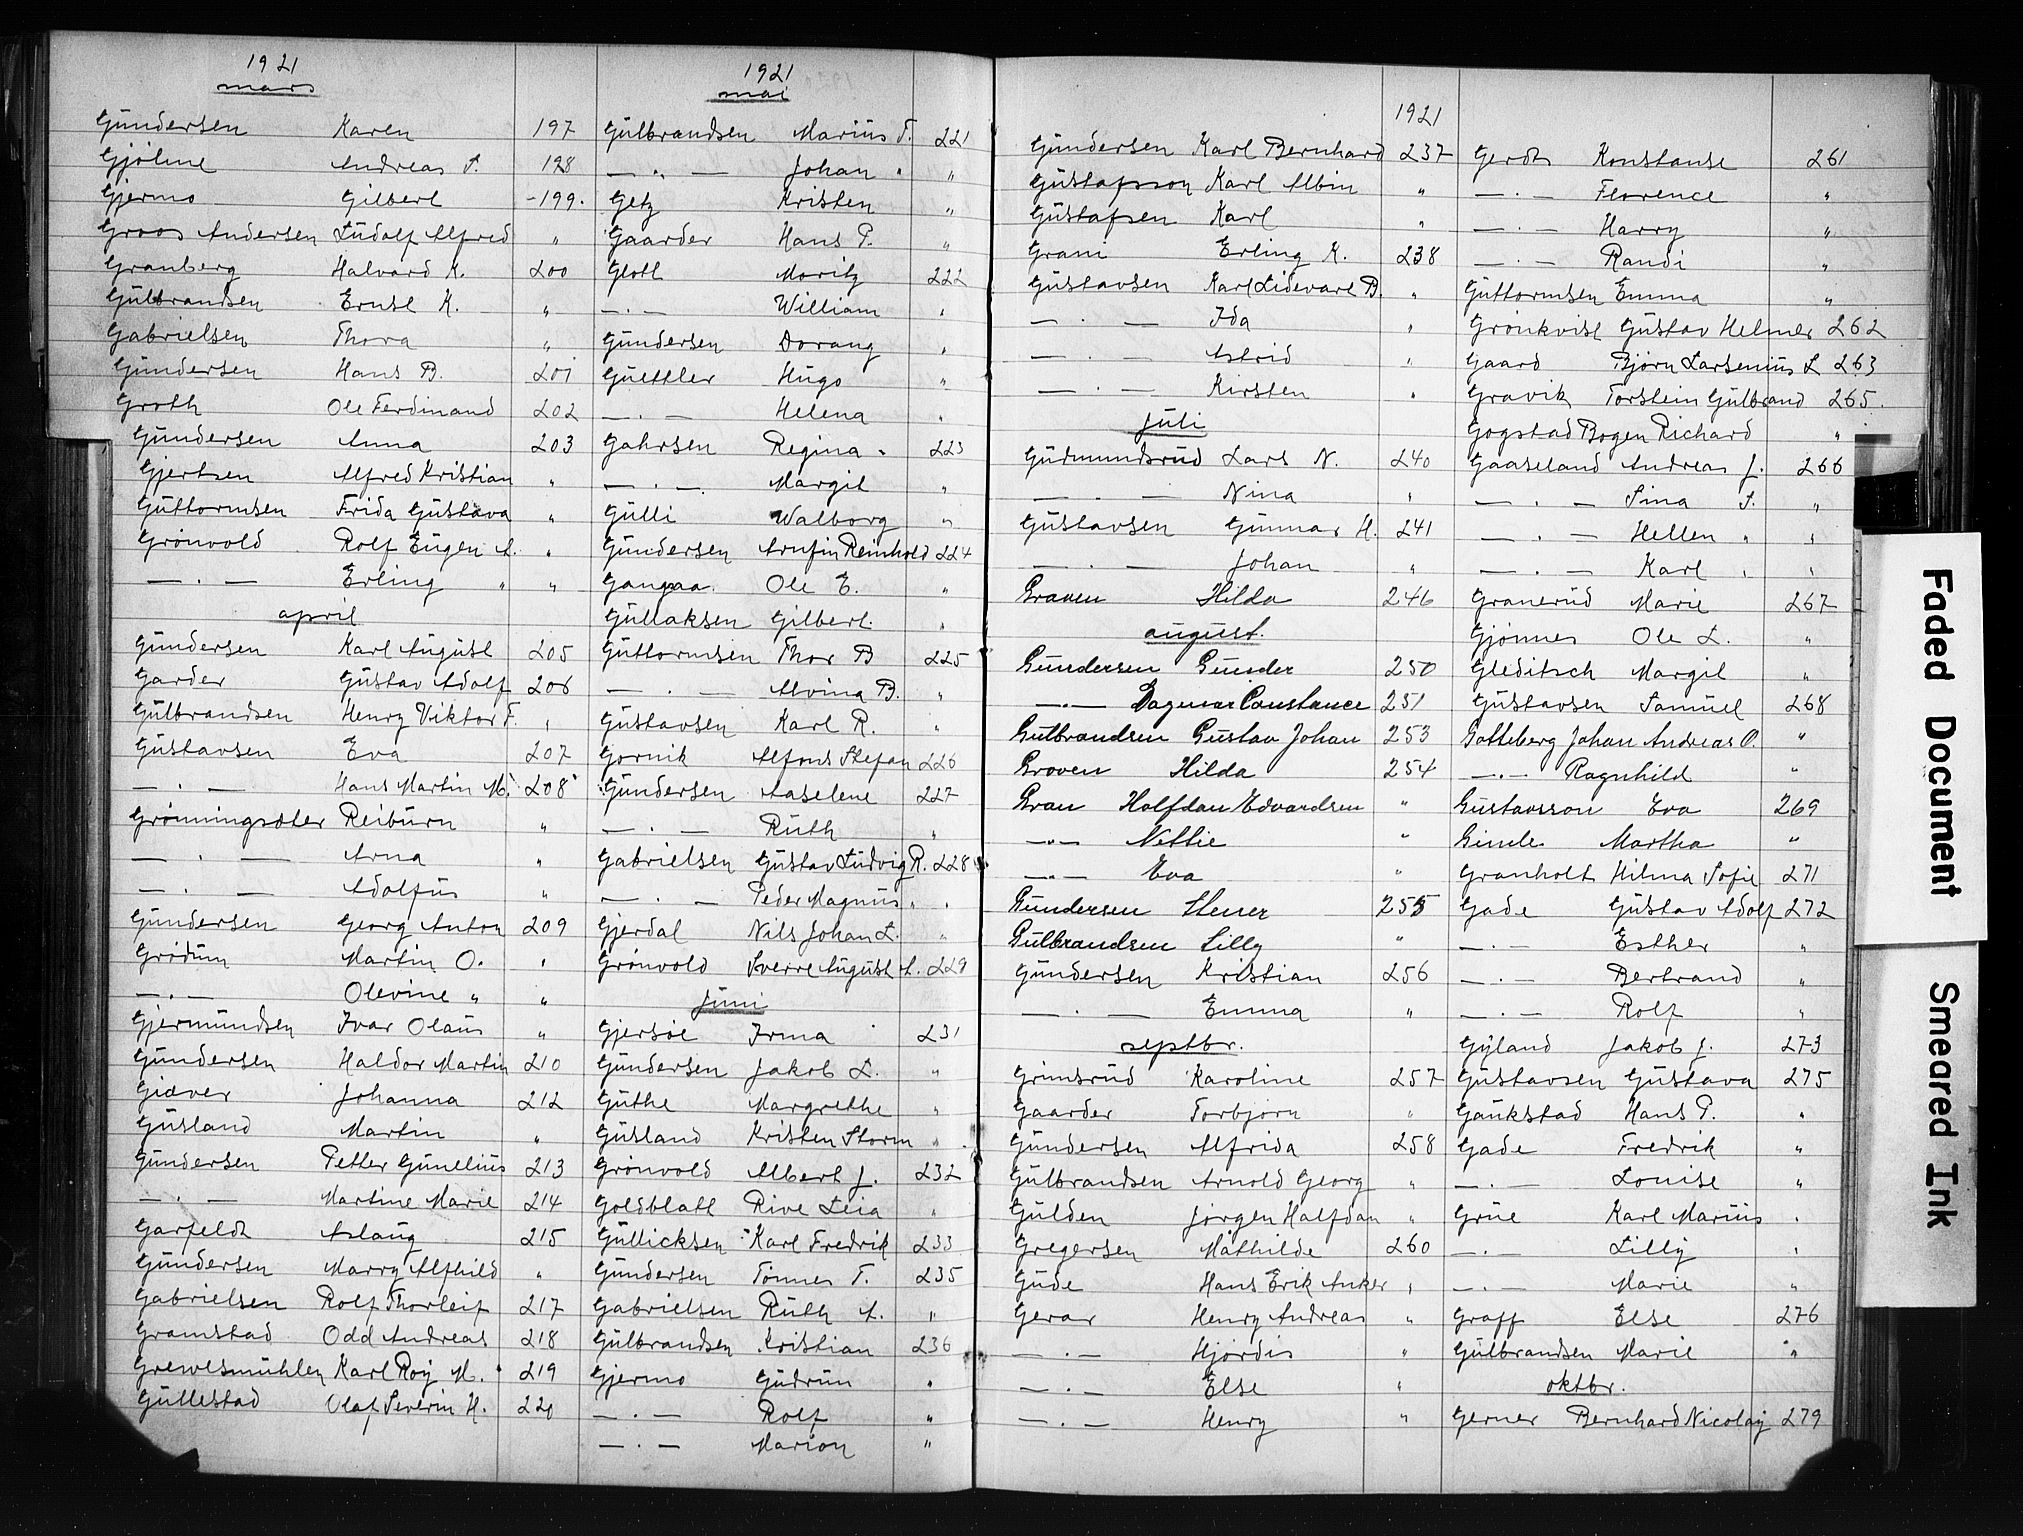 1921
mars
Gundersen Karen 197
Gjølme Andreas S. 198
Gjermo Gilbert -199.
Groos Andersen Ludolf Alfred "
Granberg Halvard K. 200
Gulbrandsen Ernst K. "
Gabrielsen Thora "
Gundersen Hans B. 201
Groth Ole Ferdinand 202
Gundersen Anna 203
Gjertsen Alfred Kristian "
Guttormsen Frida Gustava "
Grønvold Rolf Eugen A. "
— . — Erling " "
april
Gundersen Karl August 205
Garder Gustav Adolf 206
Gulbrandsen Henry Viktor F. "
Gustavsen Eva 207
— . — Hans Martin M. 208
Grønningsæter Reiburn "
— . — Arna "
— . — Adolfus "
Gundersen Georg Anton 209
Grødum Martin O. "
— . — Olevine " "
Gjermundsen Ivar Olaus "
Gundersen Haldor Martin 210
Giæver Johanna 212
Gusland Martin "
Gundersen Petter Gunelius 213
— . — Martine Marie 214
Garfeldt Aslaug 215
Gundersen Marry Alfhild "
Gabrielsen Rolf Thorleif 217
Gramstad Odd Andreas 218
Grewesmühlen Karl Roy M. 219
Gullestad Olaf Severin H. 220
1921
mai
Gulbrandsen Marius F. 221
— " — Johan " "
Getz Kristen "
Gaarder Hans P. "
Glott Moritz 222
— . — William "
Gundersen Dorang "
Guettler Hugo "
— . — Helena "
Gahrsen Regina 223
— . — Margit "
Gulli Walborg "
Gundersen Arnfin Reinhold 224
Gangaa Ole E. "
Gullaksen Gilbert "
Guttormsen Thor B 225
— . — Alvina B. "
Gustavsen Karl R. "
Gornik Alfons Stefan 226
Gundersen Aaselene 227
— . — Ruth "
Gabrielsen Gustav Ludvig R. 228
— . — Peder Magnus " "
Gjerdal Nils Johan L. "
Grønvold Sverre August A. 229
juni
Gjersøe Irma 231
Gundersen Jakob L. "
Guthe Margrethe "
Gusland Kristen Storm "
Grønvold Albert J. 232
Goldblatt Rive Leia "
Gullicksen Karl Fredrik 233
Gundersen Tønnes T. 235
Gabrielsen Ruth A. "
Gulbrandsen Kristian 236
Gjermo Gudrun "
— . — Rolf "
— . — Marion "
1921
Gundersen Karl Bernhard 237
Gustafsson Karl Albin "
Gustafsen Karl "
Grani Erling K. 238
Gustavsen Karl Lidevart B. "
— . — Ida "
— . — Astrid "
— . — Kirsten "
juli
Gudmundsrud Lars N. 240
— . — Nina "
Gustavsen Gunnar H. 241
— . — Johan "
Graven Hilda 246
august.
Gundersen Gunder 250
— . — Dagmar Constance 251
Gulbrandsen Gustav Johan 253
Groven Hilda 254
Gran Halfdan Edvardsen "
— " — Nettie "
— " — Eva "
Gundersen Stener 255
Gulbrandsen Lilly "
Gundersen Kristian 256
— . — Emma "
septbr.
Grimsrud Karoline 257
Gaarder Torbjørn "
Gundersen Alfrida 258
Gulbrandsen Arnold Georg "
Gulden Jørgen Halfdan "
Gregersen Mathilde 260
Gude Hans Erik Anker "
Gerar Henry Andreas "
— . — Hjørdis "
— . — Else "
— . — Henry "
Gerdts Konstanse 261
— . — Florence "
— . — Harry "
— . — Randi "
Guttormsen Emma "
Grönkvist Gustav Helmer 262
Gaard Bjørn Larsenius L 263
Gravik Torstein Gulbrand 265.
Gogstad Bogen Richard "
Gaaseland Andreas J. 266
— . — Sina S. "
— . — Hellen " "
— . — Karl " "
Granerud Marie 267
Gjønnes Ole L. "
Gleditsch Margit "
Gustavsen Samuel 268
Gotteberg Johan Andreas O. "
— . — Ragnhild "
Gustavsson Eva 269
Gimle Martha "
Granholt Hilma Sofie 271
Gade Gustav Adolf 272
— . — Esther "
— . — Bertrand "
— . — Rolf "
Gyland Jakob J. 273
Gustavsen Gustava 275
Gaukstad Hans P. "
Gade Fredrik "
— . — Louise "
Grue Karl Marius "
— . — Lilly "
— . — Marie "
Graff Else 276
Gulbrandsen Marie "
oktbr.
Gerner Bernhard Nicolay 279
Faded Document
Smeared Ink